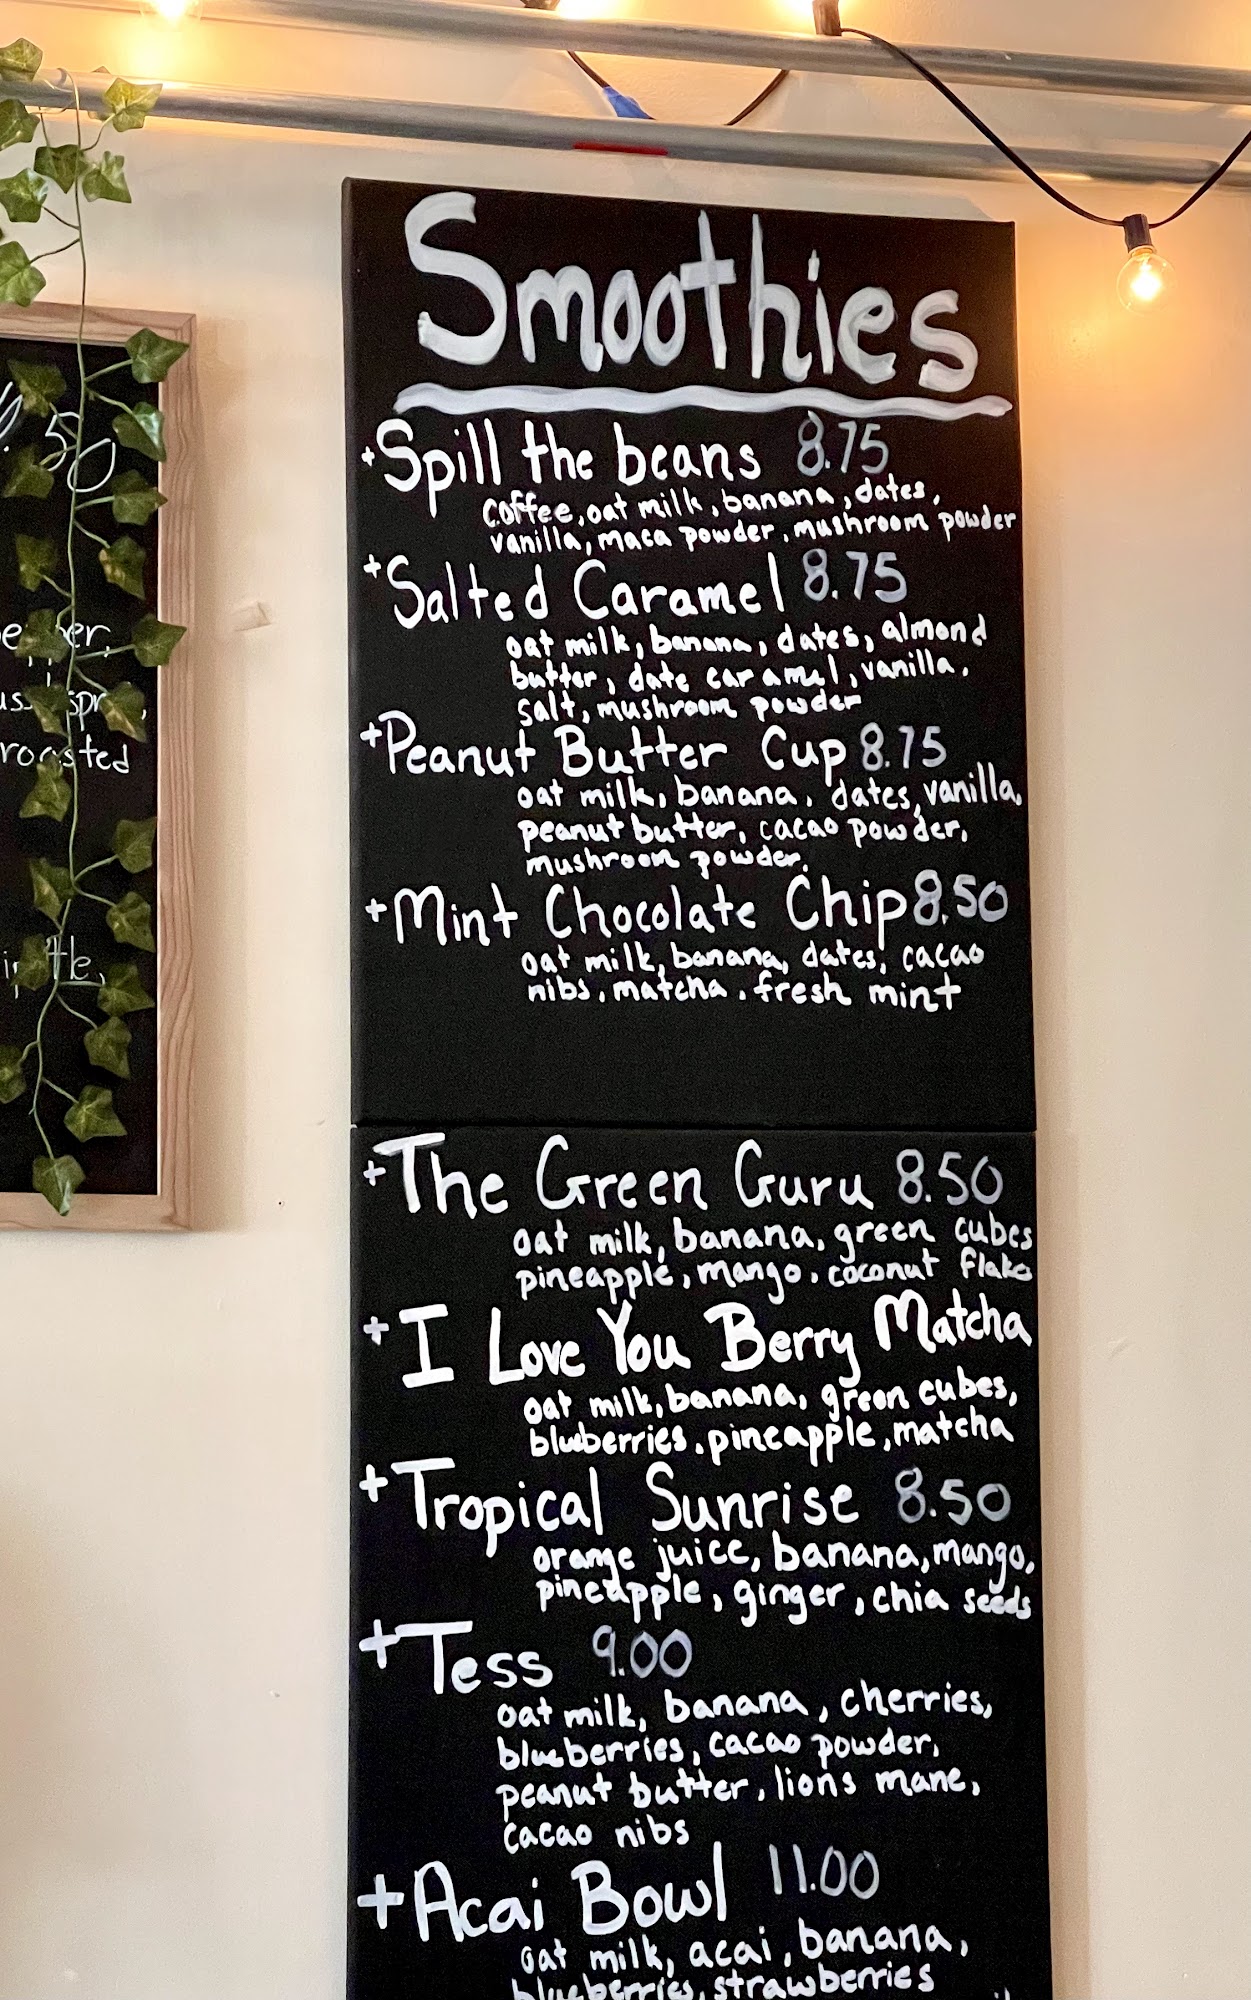 Smoothies
+Spill the beans 8.75
coffee, oat milk, banana, dates,
vanilla, maca powder, mushroom powder
+Salted Caramel 8.75
oat milk, banana, dates, almond
butter, date caramel, vanilla,
salt, mushroom powder
+Peanut Butter Cup 8.75
oat milk, banana, dates, vanilla,
peanut butter, cacao powder,
mushroom powder.
+Mint Chocolate Chip 8.50
oat milk, banana, dates, cacao
nibs, matcha, fresh mint
+The Green Guru 8.50
oat milk, banana, green cubes
pineapple, mango, coconut flakes
+I Love You Berry Matcha
oat milk, banana, green cubes,
blueberries, pineapple, matcha
+Tropical Sunrise 8.50
orange juice, banana, mango,
pineapple, ginger, chia seeds
+Tess 9.00
oat milk, banana, cherries,
blueberries, cacao powder,
peanut butter, lions mane,
cacao nibs
+Acai Bowl 11.00
oat milk, acai, banana,
blueberries, strawberries
roasted